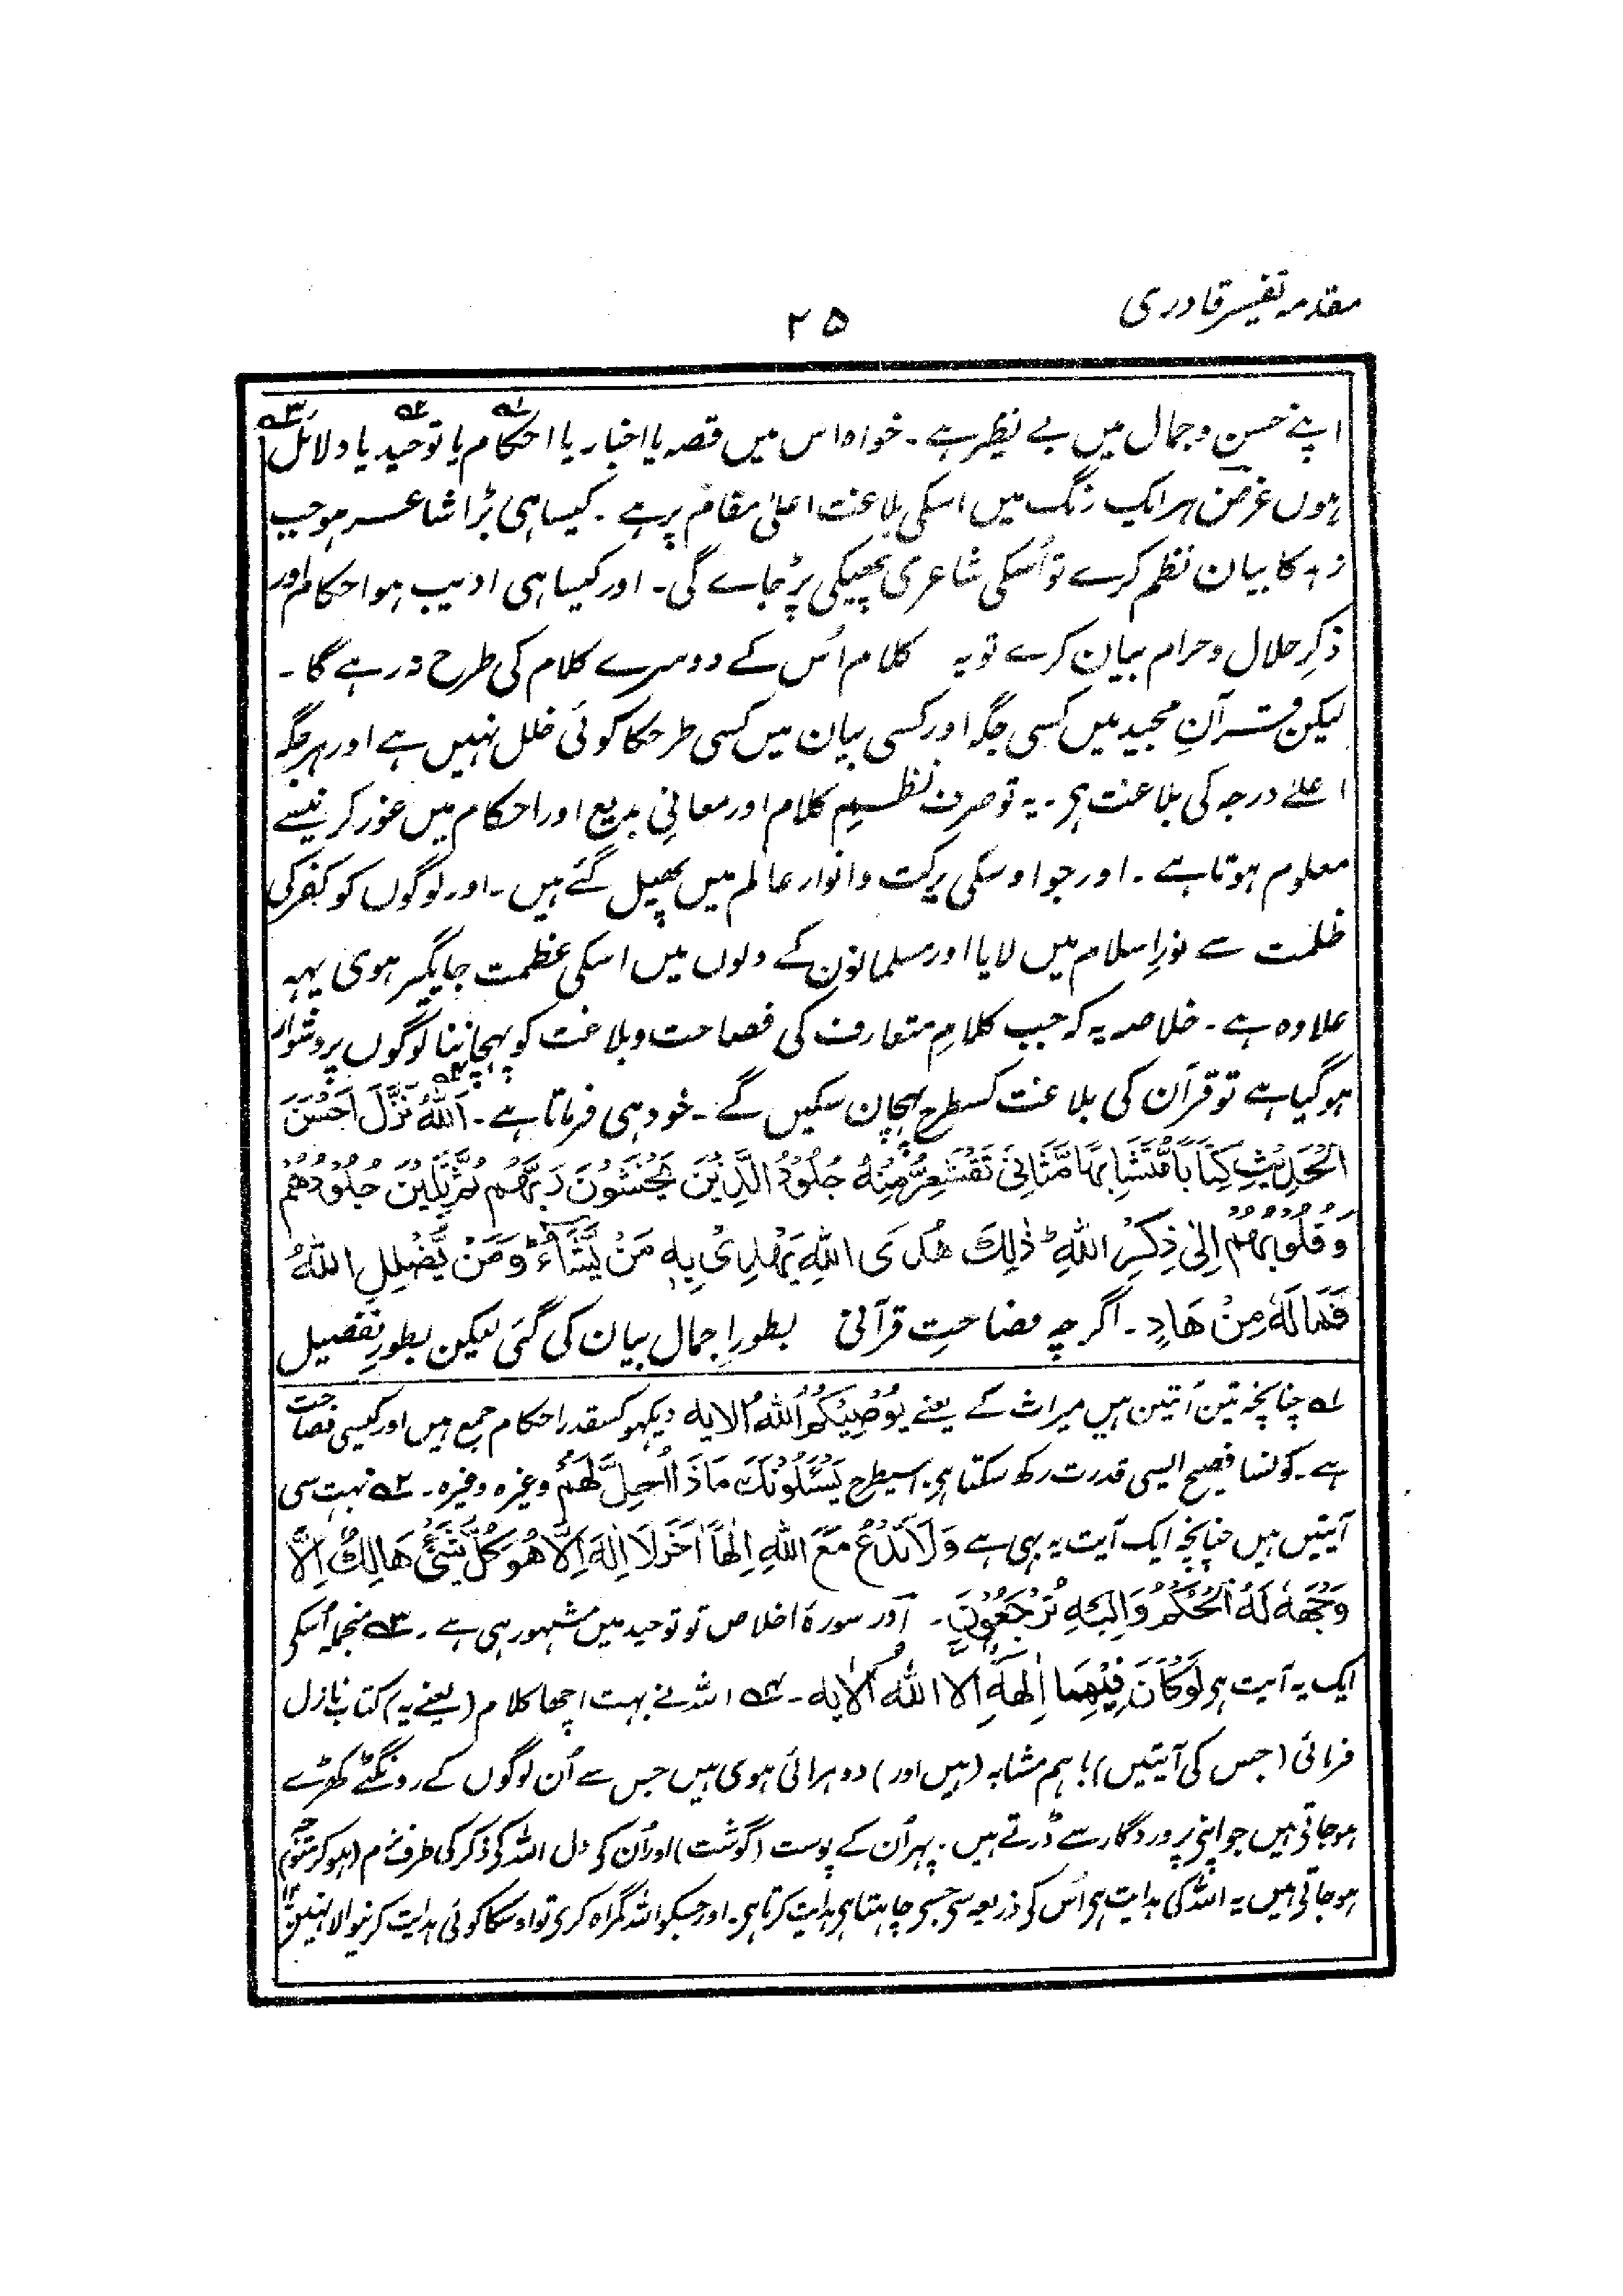 مقدمہ تفسیر قادری
۲۵
اپنے حسن و جمال میں بے نظیر ہے ۔ خواہ اس میں قصہ یا اخبار یا احکام۱؎ یا توحید۲؎ یا دلائل۳؎
ہوں غرض ہر ایک رنگ میں اسکی بلاغت اعلیٰ مقام پر ہے ۔ کیسا ہی بڑا شاعر ہو جب
زہد کا بیان نظم کرے تو اُسکی شاعری پھیکی پڑ جاے گی ۔ اور کیسا ہی ادیب ہو احکام اور
ذکرِ حلال و حرام بیان کرے تو یہ کلام اُس کے دوسرے کلام کی طرح نہ رہے گا ۔
لیکن قرآنِ مجید میں کسی جگہ اور کسی بیان میں کسی طرحکا کوئی خلل نہیں ہے اور ہر جگہ
اعلےٰ درجہ کی بلاغت ہی ۔ یہ تو صرف نظمِ کلام اور معانیِ بدیع اور احکام میں غور کرنیسے
معلوم ہوتا ہے ۔ اور جو اوسکی برکت و انوار عالم میں پھیل گئے ہیں ۔ اور لوگوں کو کفر کی
ظلمت سے نورِ اسلام میں لایا اور مسلمانون کے دلوں میں اسکی عظمت جایگیر ہوی یہہ
علاوہ ہے ۔ خلاصہ یہ کہ جب کلامِ متعارف کی فصاحت و بلاغت کو پہچاننا لوگوں پر دشوار
ہو گیا ہے تو قرآن کی بلاغت کسطرح پہچان سکیں گے ۔ خود ہی فرماتا ہے ۔ اَللّٰهُ۴؎ نَزَّلَ اَحْسَنَ
الْحَدِيْثِ كِتَابًا مُّتَشَابِهًا مَّثَانِیَ تَقْشَعِرُّ مِنْهُ جُلُوْدُ الَّذِيْنَ يَخْشَوْنَ رَبَّهُم ثُمَّ تَلِيْنُ جُلُوْدُهُمْ
وَ قُلُوْبُهُمْ اِلٰى ذِكْرِ اللّٰهِ ؕ ذٰلِكَ هُدَى اللّٰهِ يَهْدِیْ بِهٖ مَنْ يَّشَآءُ ؕ وَ مَنْ يُّضْلِلِ اللّٰهُ
فَمَا لَهٗ مِنْ هَادٍ ۔ اگرچہ فصاحتِ قرآنی بطورِ اجمال بیان کی گئی لیکن بطورِ تفصیل
۱؎ چنانچہ تین اٰتین ہیں میراث کے یعنے يُوْصِيْكُمُ اللّٰهُ الایہ دیکہو کسقدر احکام جمع ہیں اور کیسی فصاحت
ہے ۔ کونسا فصیح ایسی قدرت رکھ سکتا ہی ۔ اسیطرح يَسْـَٔلُوْنَكَ مَاذَا اُحِلَّ لَهُمْ وغیرہ وغیرہ ۔ ۲؎ بہت سی
آیتیں ہیں چنانچہ ایک آیت یہ بہی ہے وَلَا تَدْعُ مَعَ اللّٰهِ اِلٰهًا اٰخَرَ لَا اِلٰهَ اِلَّا هُوَ كُلُّ شَیْءٍ هَالِكٌ اِلَّا
وَجْهَهٗ لَهُ الْحُكْمُ وَ اِلَيْهِ تُرْجَعُوْنَ ۔ اور سورۂ اخلاص تو توحید میں مشہور ہی ہے ۔ ۳؎ منجملہ اُسکی
ایک یہ آیت ہی لَوْ كَانَ فِيْهِمَا اٰلِهَةٌ اِلَّا اللّٰهُ الایہ ۔ ۴؎ اللہ نے بہت اچھا کلام (یعنے یہ) کتاب نازل
فرمائی (جس کی آیتیں) باہم مشابہ (ہیں اور) دوہرائی ہوی ہیں جس سے اُن لوگوں کے رونگٹے کھڑے
ہو جاتی ہیں جو اپنی پروردگار سے ڈرتے ہیں ۔ پہر اُن کے پوست (گوشت) اور اُن کی دل اللہ کی ذکر کی طرف نرم (ہو کر متوجہ)
ہو جاتی ہیں یہ اللہ کی ہدایت ہی اُس کی ذریعہ سی جسی چاہتا ہی ہدایت کرتا ہی ۔ اور جسکو اللہ گمراہ کری تو اوسکا کوئی ہدایت کرنیوالا نہیں ۱۲